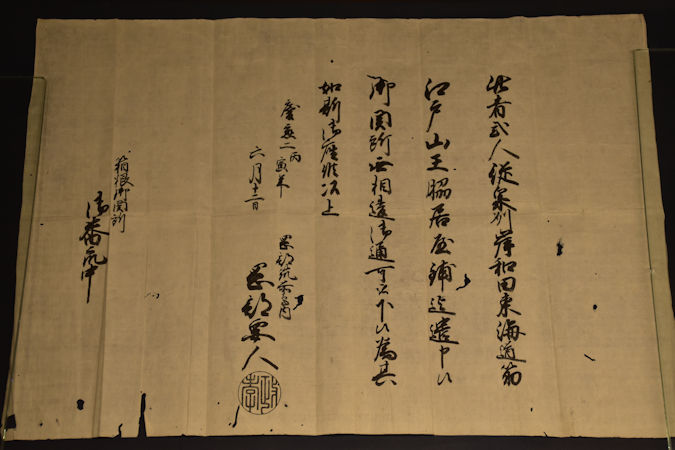 此者弐人従泉州岸和田東海道筋
江戸山王脇居屋鋪迄遣申候
御関所無相違御通可被下候為其
如斯御座候以上
慶応二丙寅年
六月十二日
岡部筑前守内
岡部要人
箱根御関所
御番衆中